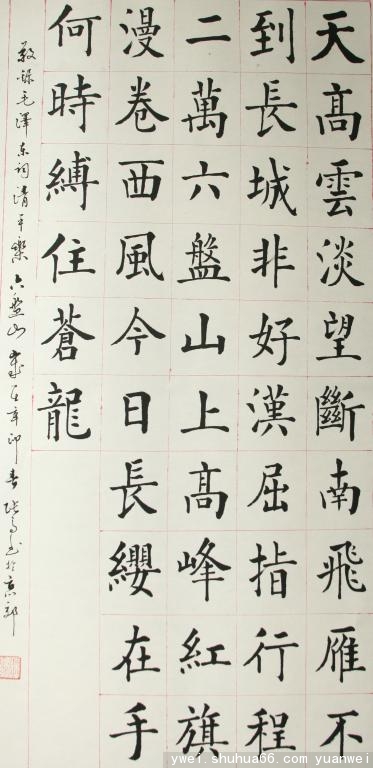 天高雲淡望斷南飛雁不
到長城非好漢屈指行程
二萬六盤山上高峰紅旗
漫卷西風今日長纓在手
何時縛住蒼龍
敬錄毛澤东词清平樂六盤山歲在辛卯春於京郊
ywei.shuhua66.com yuanwei